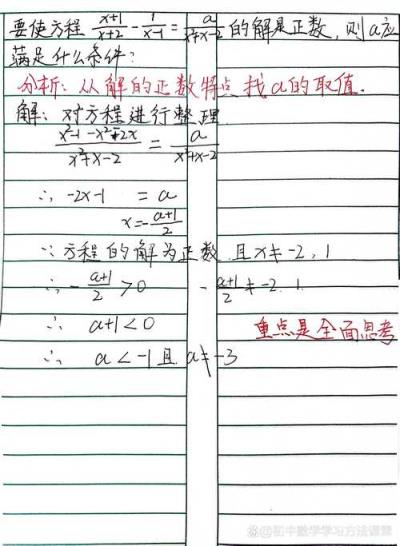 要使方程 (x+1)/(x+2) - 1/(x-1) = a/(x²+x-2) 的解是正数，则a应
满足什么条件：
分析：从解的正数特点找a的取值.
解：对方程进行整理
(x²-1-x²-2x)/(x²+x-2) = a/(x²+x-2)
∴ -2x-1 = a
x=-(a+1)/2
∵方程的解为正数 且x≠-2，1
∴ -(a+1)/2 >0 -(a+1)/2 ≠-2. 1.
∴ a+1<0
重点是全面思考
∴ a<-1且 a≠-3
@初中数学学习方法课堂